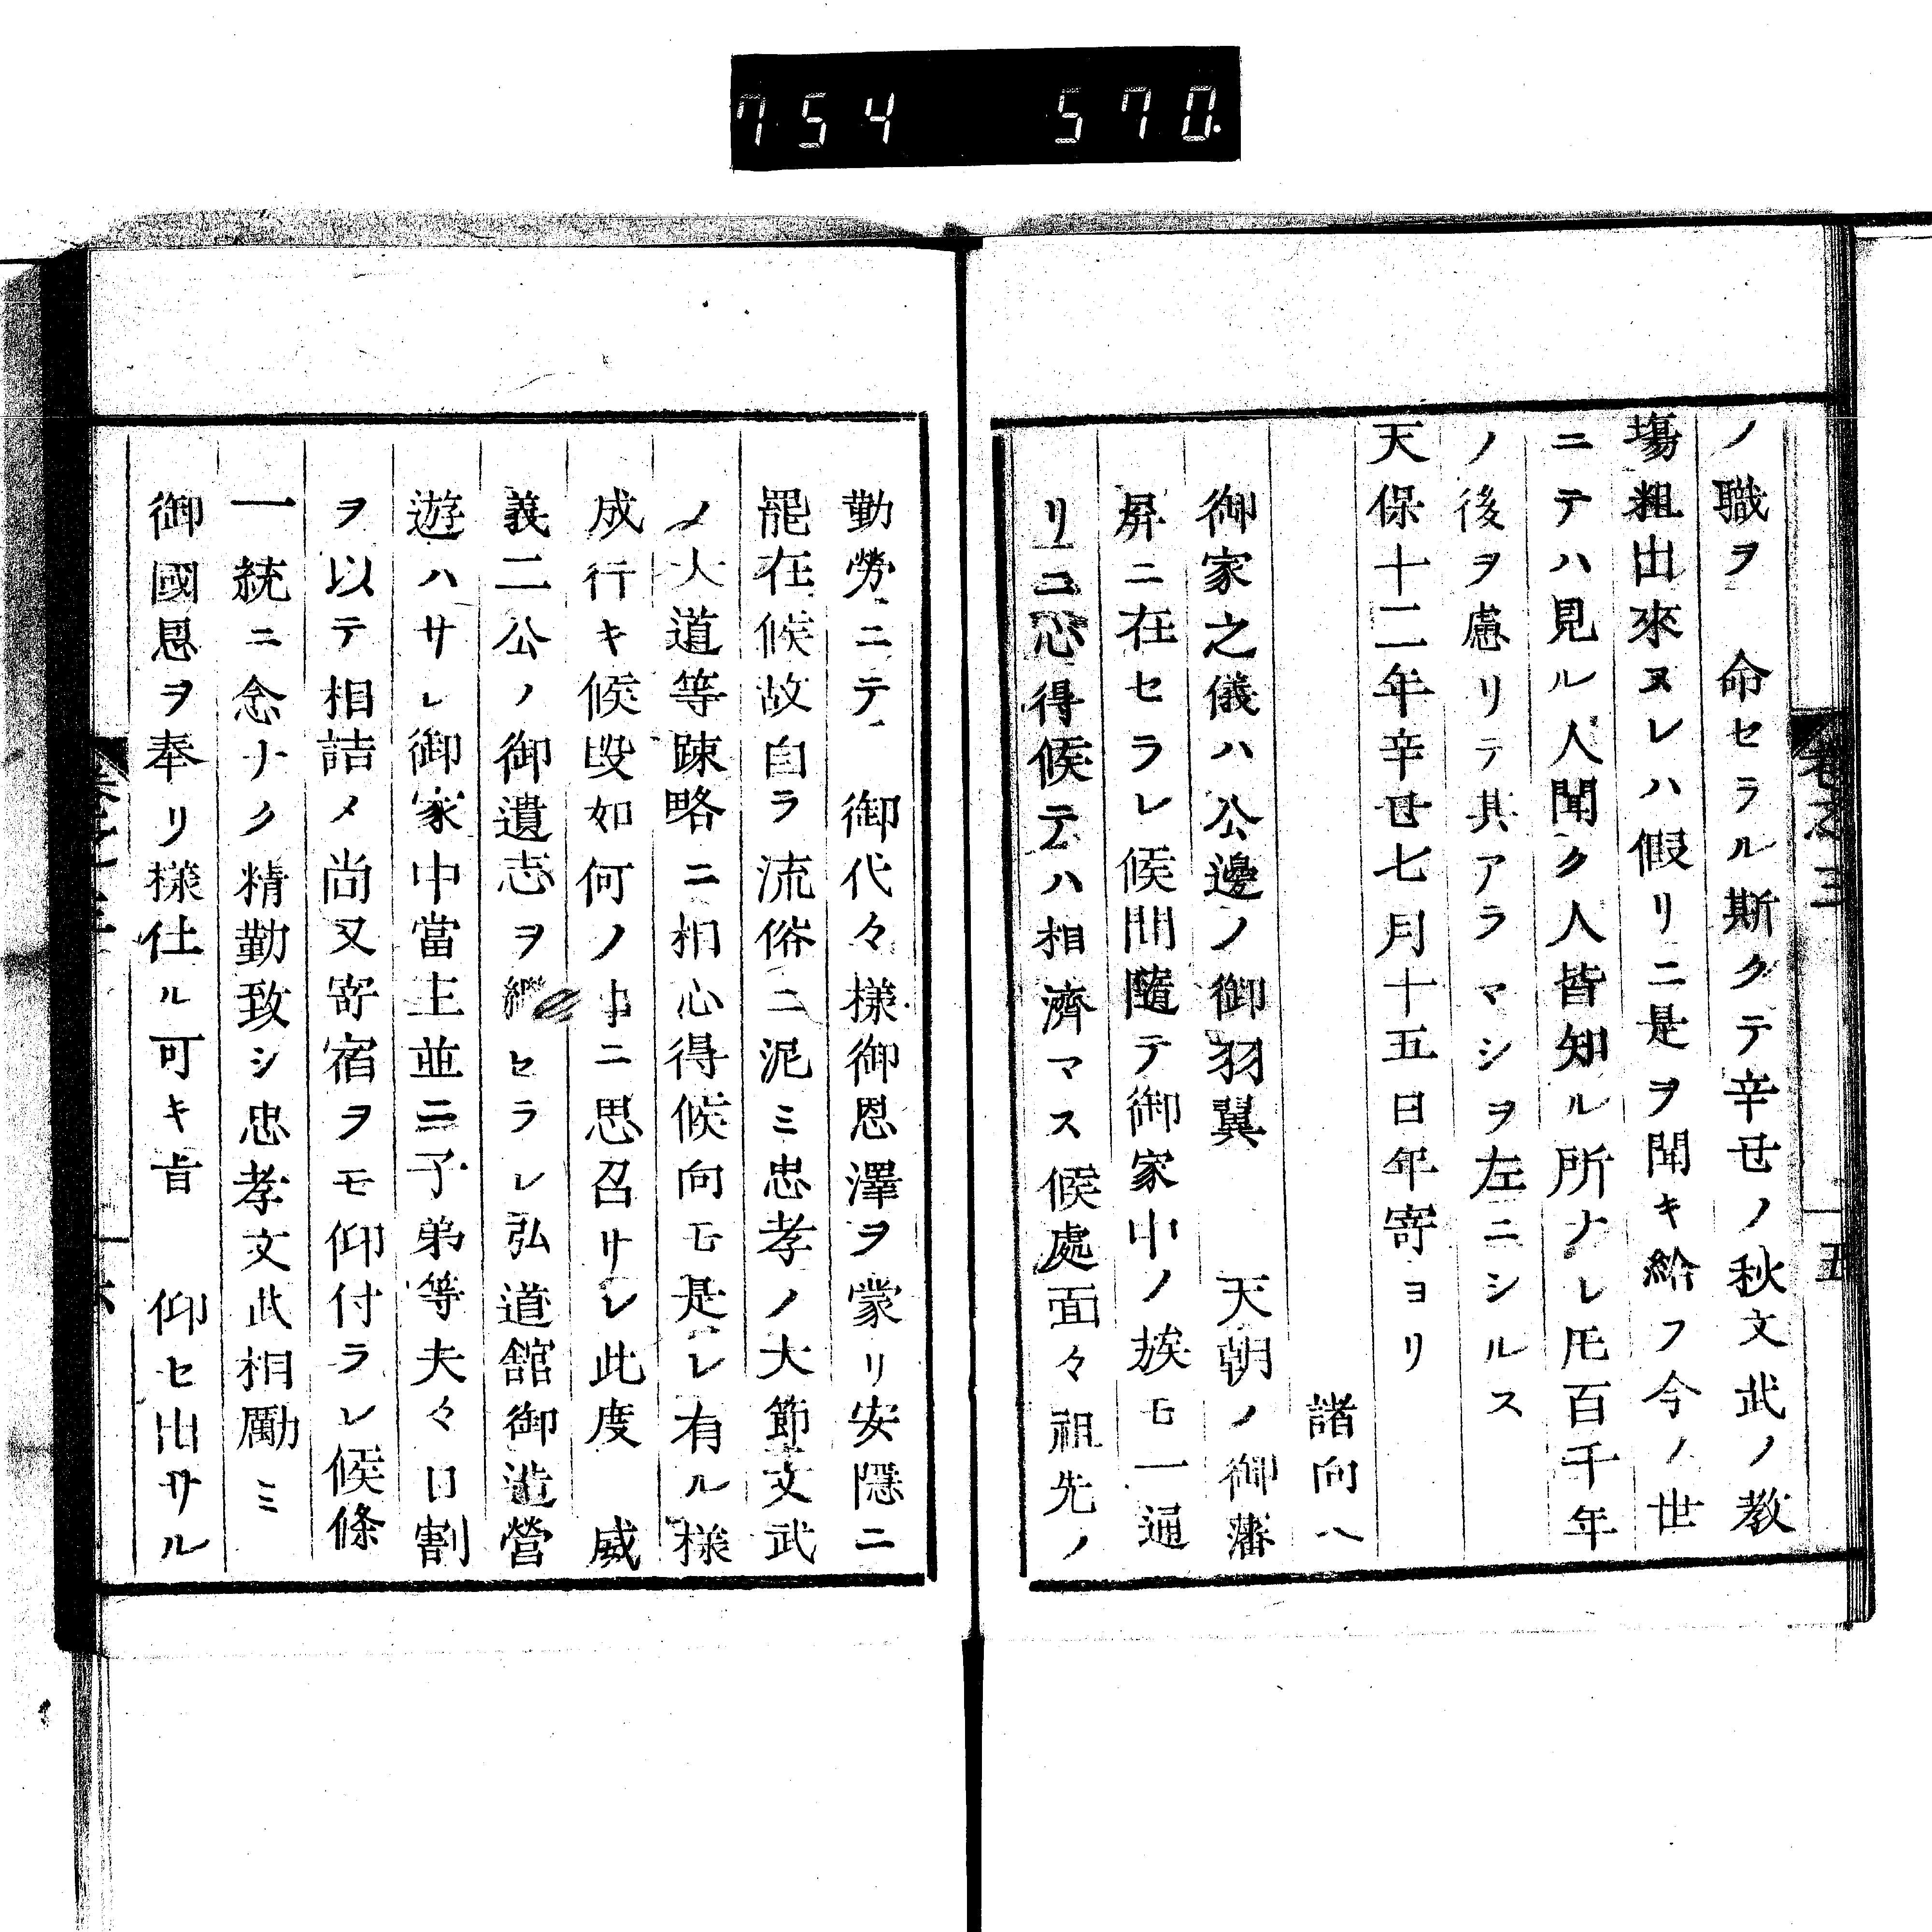 754 570.
ノ職ヲ　命セラル斯クテ辛丑ノ秋文武ノ教
塲粗出來ヌレハ假リニ是ヲ開キ給フ今ノ世
ニテハ見ル人聞ク人皆知ル所ナレ𪜈百千年
ノ後ヲ慮リテ其アラマシヲ左ニシルス
天保十二年辛丑七月十五日年寄ヨリ
諸向ハ
御家之儀ハ公邊ノ御羽翼　天朝ノ御藩
屏ニ在セラレ候間隨テ御家中ノ族モ一通
リニ心得候テハ相濟マス候處面々祖先ノ
卷之三
五
勤勞ニテ　御代々樣御恩澤ヲ蒙リ安隱ニ
罷在候故自ラ流俗ニ泥ミ忠孝ノ大節文武
ノ大道等踈略ニ相心得候向モ是レ有ル樣
成行キ候段如何ノ事ニ思召サレ此度　威
義二公ノ御遺志ヲ繼セラレ弘道館御造營
遊ハサレ御家中當主並ニ子弟等夫々日割
ヲ以テ相詰メ尚又寄宿ヲモ仰付ラレ候條
一統ニ念ナク精勤致シ忠孝文武相勵ミ
御國恩ヲ奉リ樣仕ル可キ旨　仰セ出サル
卷之三
六